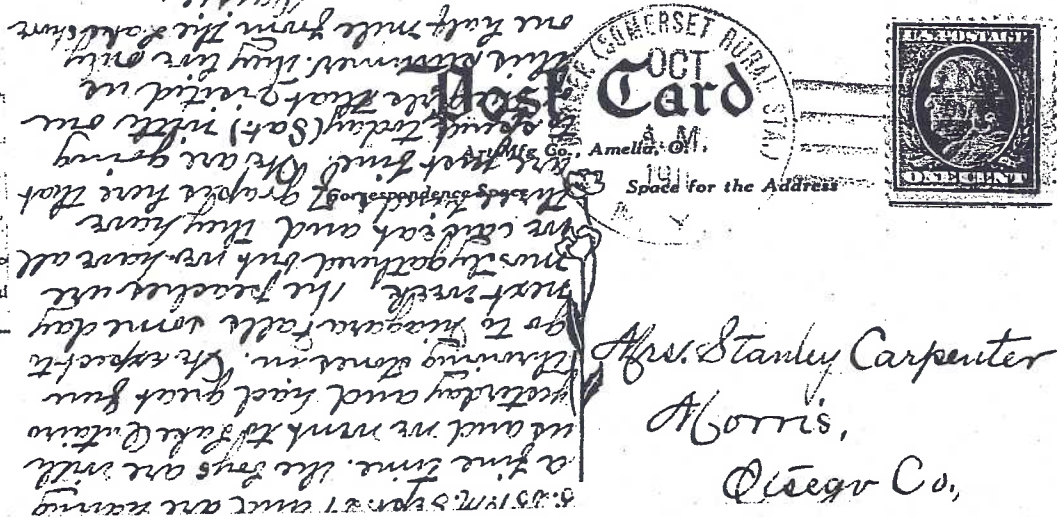 Post Card
Art Mfg Co., Amelia, O.
Space for the Address
(SOMERSET RURAL STA.)
OCT
A.M.
U.S. POSTAGE
ONE CENT
Mrs. Stanley Carpenter
Morris,
Otsego Co.,
P.M. Sept. and are having
a fine time. The boys are with
us and we went to Lake Ontario
yesterday and had great fun
throwing stones in. We expect to
go to Niagara Falls some day
next week, the peaches are
mostly gathered but we have all
we can eat and they have
of grapes here that
are just fine. We are going
to spend today (Sat) with one
that visited us
this summer. They live only
one half mile from the Lake shore